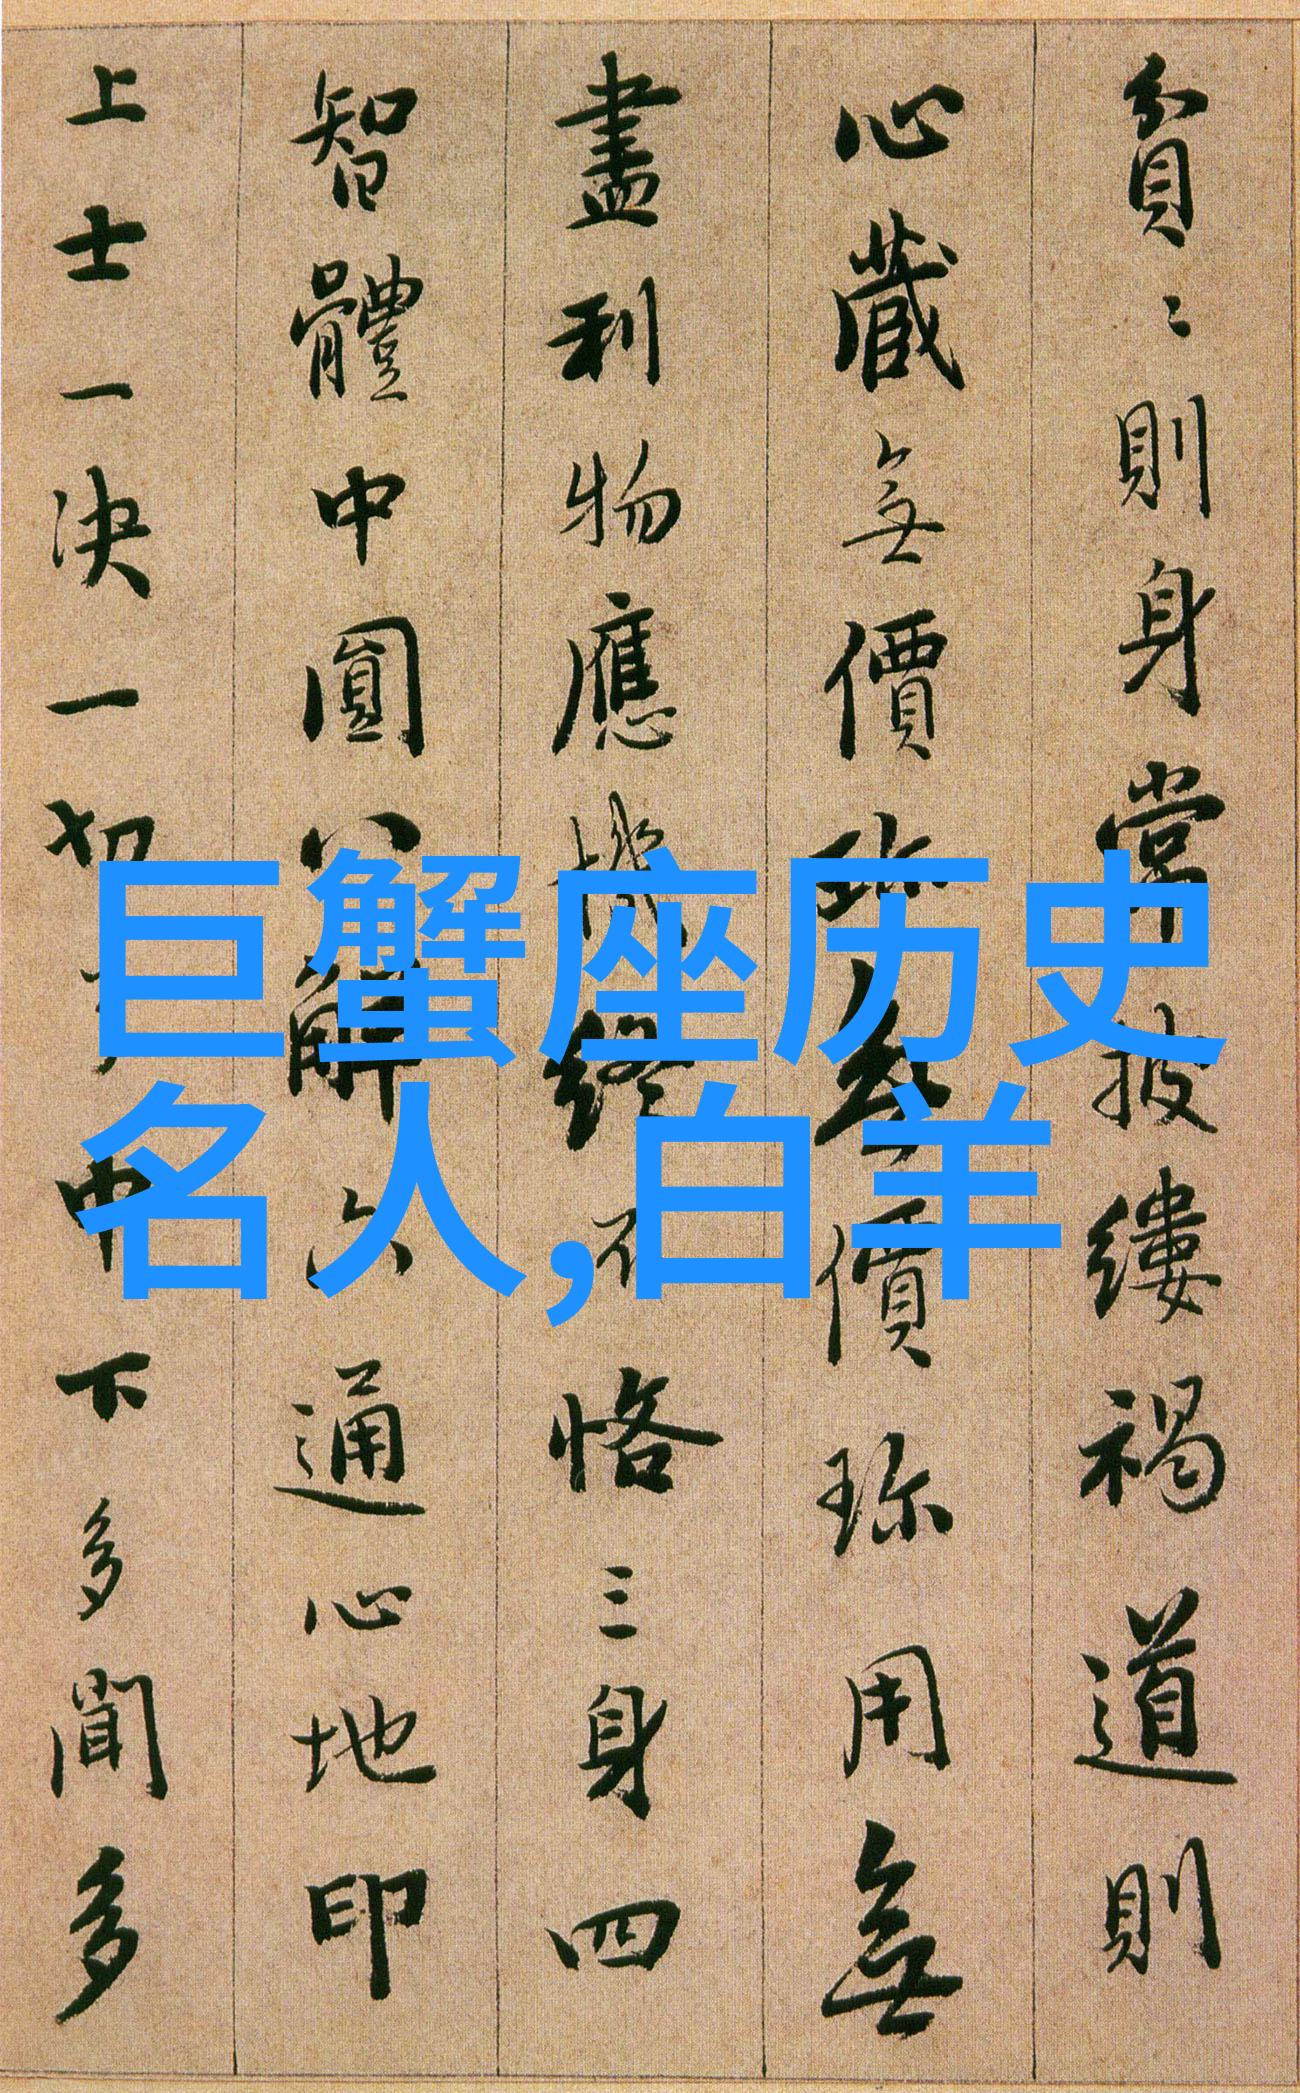 貧〻則身常披縷褐道則
心藏無價珍無價珍用無
盡利物應機終不恪三身四
智體中圓八解六通心地印
上士一决一切了中下多聞多
巨蟹座历史
名人,白羊